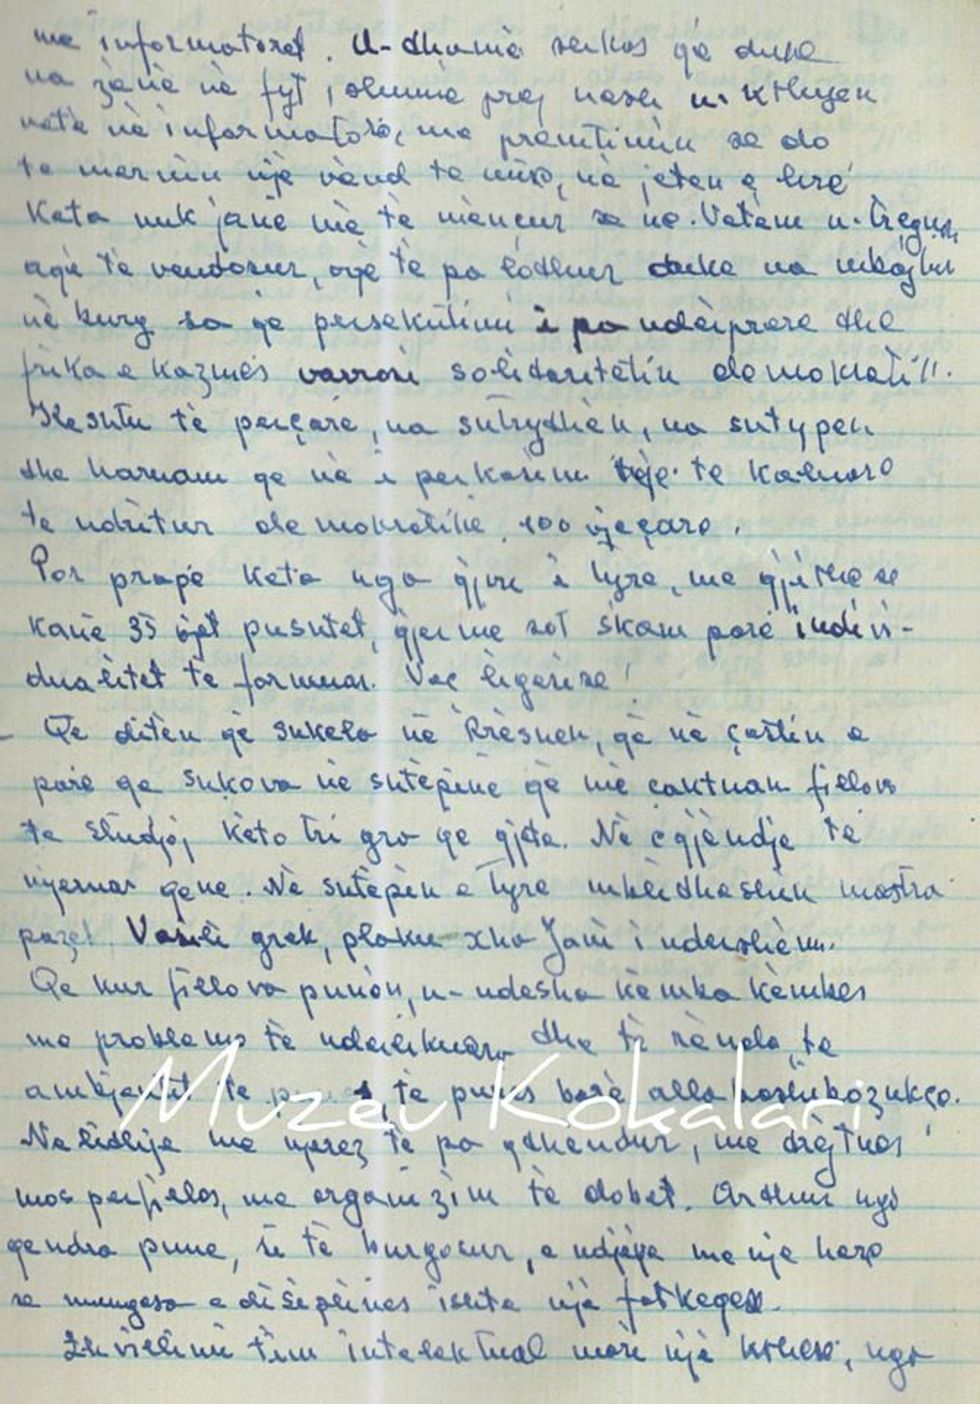 me informatorët. U-dhanë serkos që duke
na zënë në fyt, shumë prej nesh u kthyen
vetë në informatorë, me premtimin se do
te merrnin një vënd te mirë, në jeten e lirë
Keta nuk janë më të mënçur se ne. Vetëm u-treguan
aqë të vendosur, aqë të pa lodhur duke na mbajtur
në burg sa që persekutimi i pa ndërprere dhe
frika e kazmës varrosi solidaritetin demokrati
Keshtu të perçarë, na shtrydhën, na shtypen
dhe harruam qe në i perkasim te kaluarë
te ndritur demokratike 100 vjeçare.
Por prapë keta nga gjiri i tyre, me gjithë se
kanë 35 vjet pushtet, gjer me sot s'kam parë indivi-
dualitet të formuar. Veç ligësisë!
Qe ditën që shkela në Rrëshen, që në çastin e
parë qe shkova në shtëpinë që më caktuan fillova
te studjoj këto tri gra qe gjeta. Në ç'gjëndje të
mjeruar qene. Në shtëpin e tyre mblidheshin
Vasili grek, plaku xha Jani i ndershëm.
Qe kur fillova punën, u-ndesha këmba këmbës
me problemo të ndërlikuara dhe të rënda, te
ambjentit te, të punës
Ne lidhje me njerez të pa gdhendur, me drejtues
mos perfillës, me organizim të dobët. Ardhur nga
qendra pune, si të burgosur, e ndjeja me nje herë
se mungesa e disiplinës ishte një fatkeqesi.
Zhvillimi tim intelektual mori një kthesë, nga
Muzeu Kokalari